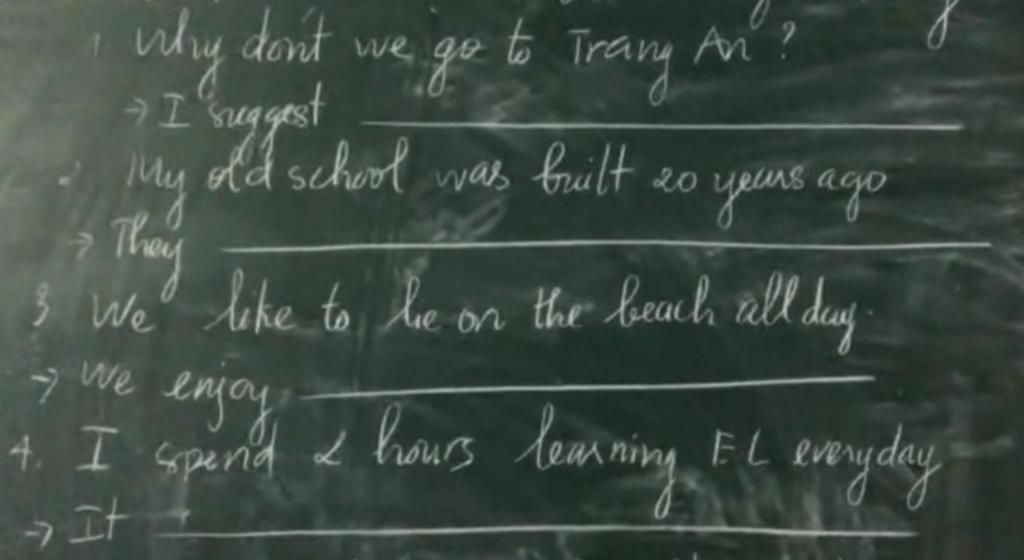 1 Why don't we go to Trang An?
→ I suggest
2 My old school was built 20 years ago
→ They
3 We like to lie on the beach all day.
→ We enjoy
4. I spend 2 hours learning EL everyday
→ It